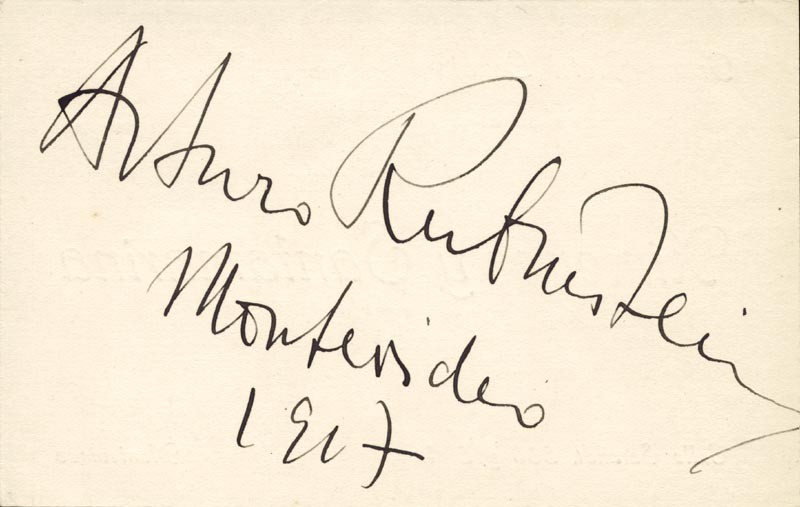 Arturo Rubinstein
Montevideo
1917